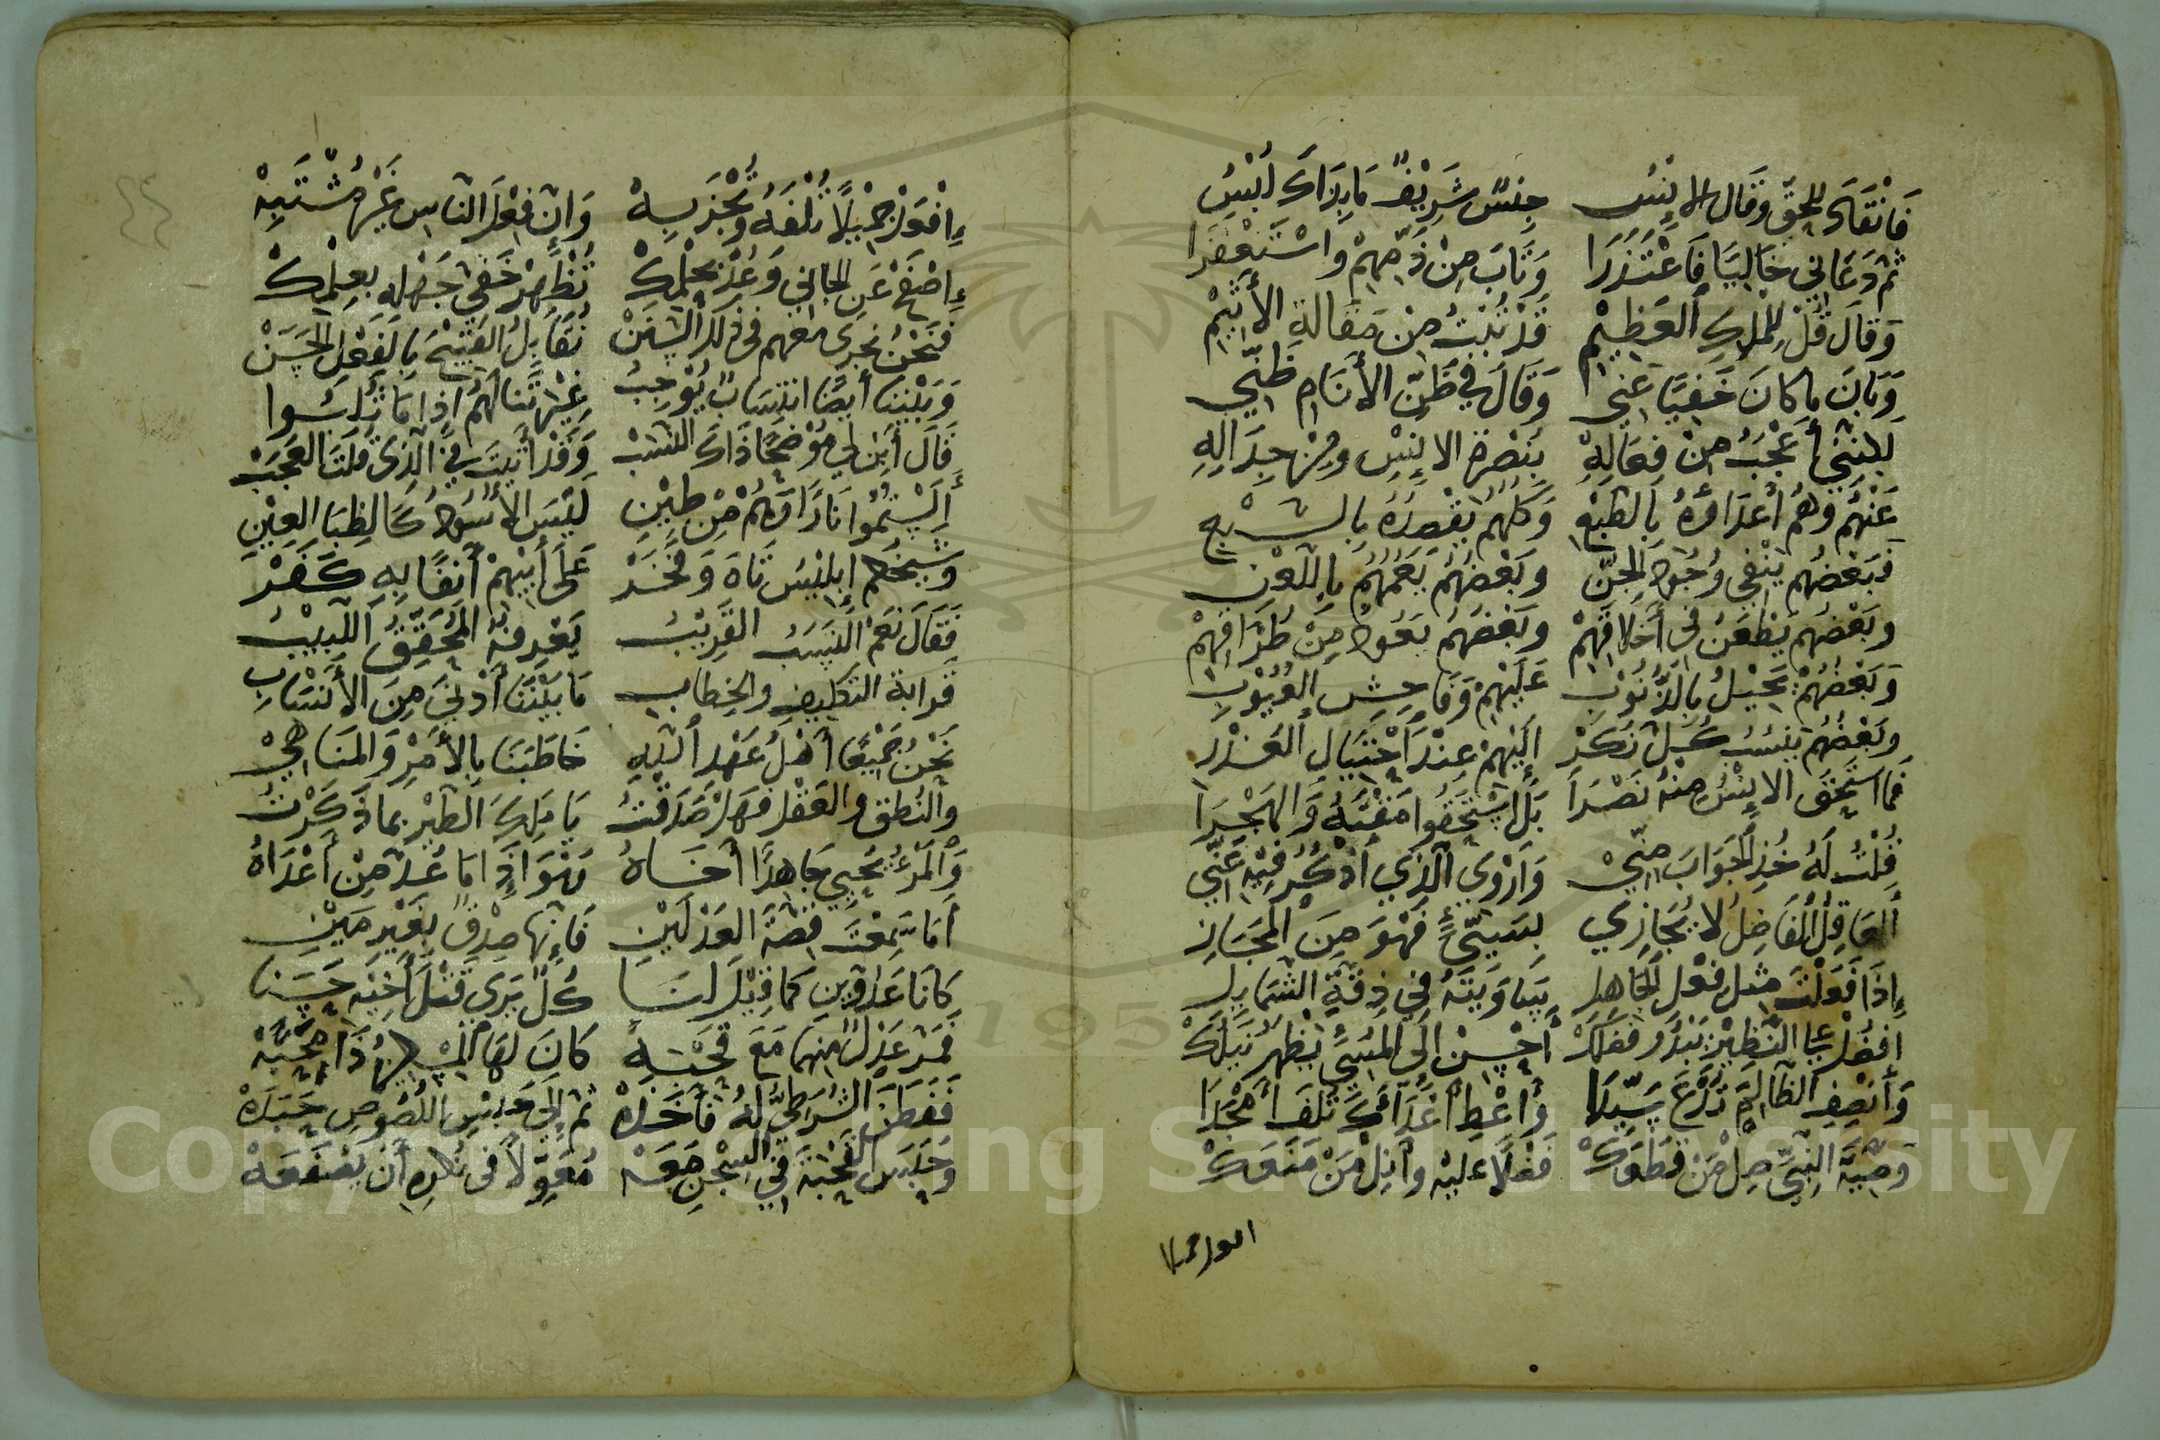 فَانْقَادَ لِلحَقِّ وَقَالَ الإِنْسُ جِنْسٌ شَرِيْفٌ مَا بِذَاكَ لَبْسُ
ثُمَّ دَعَانِي خَالِيًا فَاعْتَذَرَا وَتَابَ مِنْ ذَمِّهِمْ وَاسْتَغْفَرَا
وَقَالَ قُلْ لِلْمَلِكِ العَظِيْمِ قَدْ تُبْتُ مِنْ مَقَالَةِ الأَثِيْمِ
وَبَانَ مَا كَانَ خَفِيًّا عَنِّي وَقَالَ فِي ظَنِّ الأَنَامِ ظَنِّي
لكِنَّنِي أَعْجَبُ مِنْ فِعَالِهِ بِنَصْرَةِ الإِنْسِ وَمِنْ جِدَالِهِ
عَنْهُم وَهُمْ أَعْدَاؤُهُ بِالطَّبْعِ وَكُلُّهُمْ يَقْصِدُهُ بِالسَّبْعِ
فَبَعْضُهُم يَنْفِي وُجُودَ الجِنِّ وَبَعْضُهُمْ يَعُمُّهُمْ بِاللَّعْنِ
وَبَعْضُهُمْ يَطْعَنُ فِي أَخْلَاقِهِمْ وَبَعْضُهُمْ يَعُوذُ مِنْ طُرَّاقِهِمْ
وَبَعْضُهُمْ يُحِيْلُ بِالذُّنُوْبِ عَلَيْهِمْ وَفَاحِشِ العُيُوْبِ
وَبَعْضُهُمْ يَنْسُبُ كُلَّ نُكْرِ إِلَيْهِمْ عِنْدَ احْتِيَالِ الغَدْرِ
فَمَا اسْتَحَقَّ الإِنْسُ مِنْهُ نَصْرَا بَلِ اسْتَحَقُّوا مَقْتَهُ وَالهَجْرَا
قُلْتُ لَهُ خُذِ الجَوَابَ مِنِّيْ وَارْوِي الَّذِي أَذْكُرُ فِيْهِ عَنِّي
العَاقِلُ الفَاضِلُ لَا يُجَازِي بِسَيِّئٍ فَهْوَ مِنَ المَجَازِ
إِذَا فَعَلْتَ مِثْلَ فِعْلِ الجَاهِلِ سَاوَيْتَهُ فِي دِقَّةِ الشَّمَايِلِ
افْعَلْ بِمَا النَّظِيْرُ يَبْدُو فَضْلُكْ أَحْسِنْ إِلَى المُسِيْ يَظْهَرْ نُبْلُكْ
وَأَنْصِفِ الظَّالِمَ تُدْعَ سَيِّدَا وَأَعْطِ أَعْدَاكَ تُلْفَ أَمْجَدَا
وَصِيَّةَ النَّبِيِّ صِلْ مَنْ قَطَعَكْ فَضْلًا عَلَيْهِ وَأَنِلْ مَنْ مَنَعَكْ
افعل جميلا
إِفْعَلْ جَمِيْلًا تُلْفَهُ وَتُجْزَ بِهْ وَإِنَّ فِعْلَ النَّاسِ غَيْرُ مُشْتَبِهْ
إِصْفَحْ عَنِ الجَانِي وَعُدْ بِحِلْمِكْ تُظْهِرْ خَفِيَّ جَهْلِهِ بِعِلْمِكْ
فَنَحْنُ نَجْرِي مَعَهُم فِي ذَلِكَ السَّنَنْ نُقَابِلُ القَبِيْحَ بِالفِعْلِ الحَسَنْ
وَبَيْنَنَا أَيْضًا انْتِسَابٌ يُوْجِبُ غِيْرَتَنَا لَهُمْ إِذَا مَا ثُلِبُوا
قَالَ أَبِنْ لِي مُوْضِحًا ذَاكَ النَّسَبْ وَقَدْ أَتَيْتَ فِي الَّذِي قُلْتَ العَجَبْ
أَلَسْتُمُوا نَارًا وَهُمْ مِنْ طِيْنِ لَيْسَ الأُسُودُ كَالظِّبَاءِ العِيْنِ
وَشَيْخُكُمْ إِبْلِيْسُ تَاهَ وَفَخَرْ عَلَى أَبِيْهِمْ أَنَفًا بِهِ كَفَرْ
فَقَالَ نَعَمْ النَّسَبُ القَرِيْبُ يَعْرِفُهُ المُحَقِّقُ اللَّبِيْبُ
قَرَابَةُ التَّكْلِيفِ وَالخِطَابِ مَا بَيْنَنَا أَدْنَى مِنَ الأَنْسَابِ
نَحْنُ جَمِيْعًا أَهْلُ عَهْدِ اللّٰهِ خَاطَبَنَا بِالأَمْرِ وَالمَنَاهِيْ
وَالنُّطْقِ وَالعَقْلِ فَهَلْ صَدَقْتُ يَا مَلِكَ الطَّيْرِ بِمَا ذَكَرْتُ
وَالمَرْءُ يَحْمِي جَاهِدًا أَخَاهُ وَهْوَ إِذَا مَا عُدَّ مِنْ أَعْدَاهُ
أَمَا سَمِعْتَ قِصَّةَ العَدْلَيْنِ فَإِنَّهَا صِدْقٌ بِغَيْرِ مَيْنِ
كَانَا عَدُوَّيْنِ كَمَا قِيْلَ لَنَا كُلٌّ يَرَى قَتْلَ أَخِيْهِ حَسَنَا
فَمَرَّ عَدْلٌ مِنْهُمَا مَعَ قَحْبَهْ كَانَ لَهَا ذَا مَحَبَّهْ
فَفَطِنَ الشُّرْطِيُّ لَهُ فَأَخَذَهْ ثُمَّ إِلَى حَبْسِ اللُّصُوصِ
وَحَبَسَ القَحْبَةَ فِي السِّجْنِ مَعَهْ مُعَوِّلًا فِي أَنْ يَصْفَعَهْ
Copyright © King Saud University
195